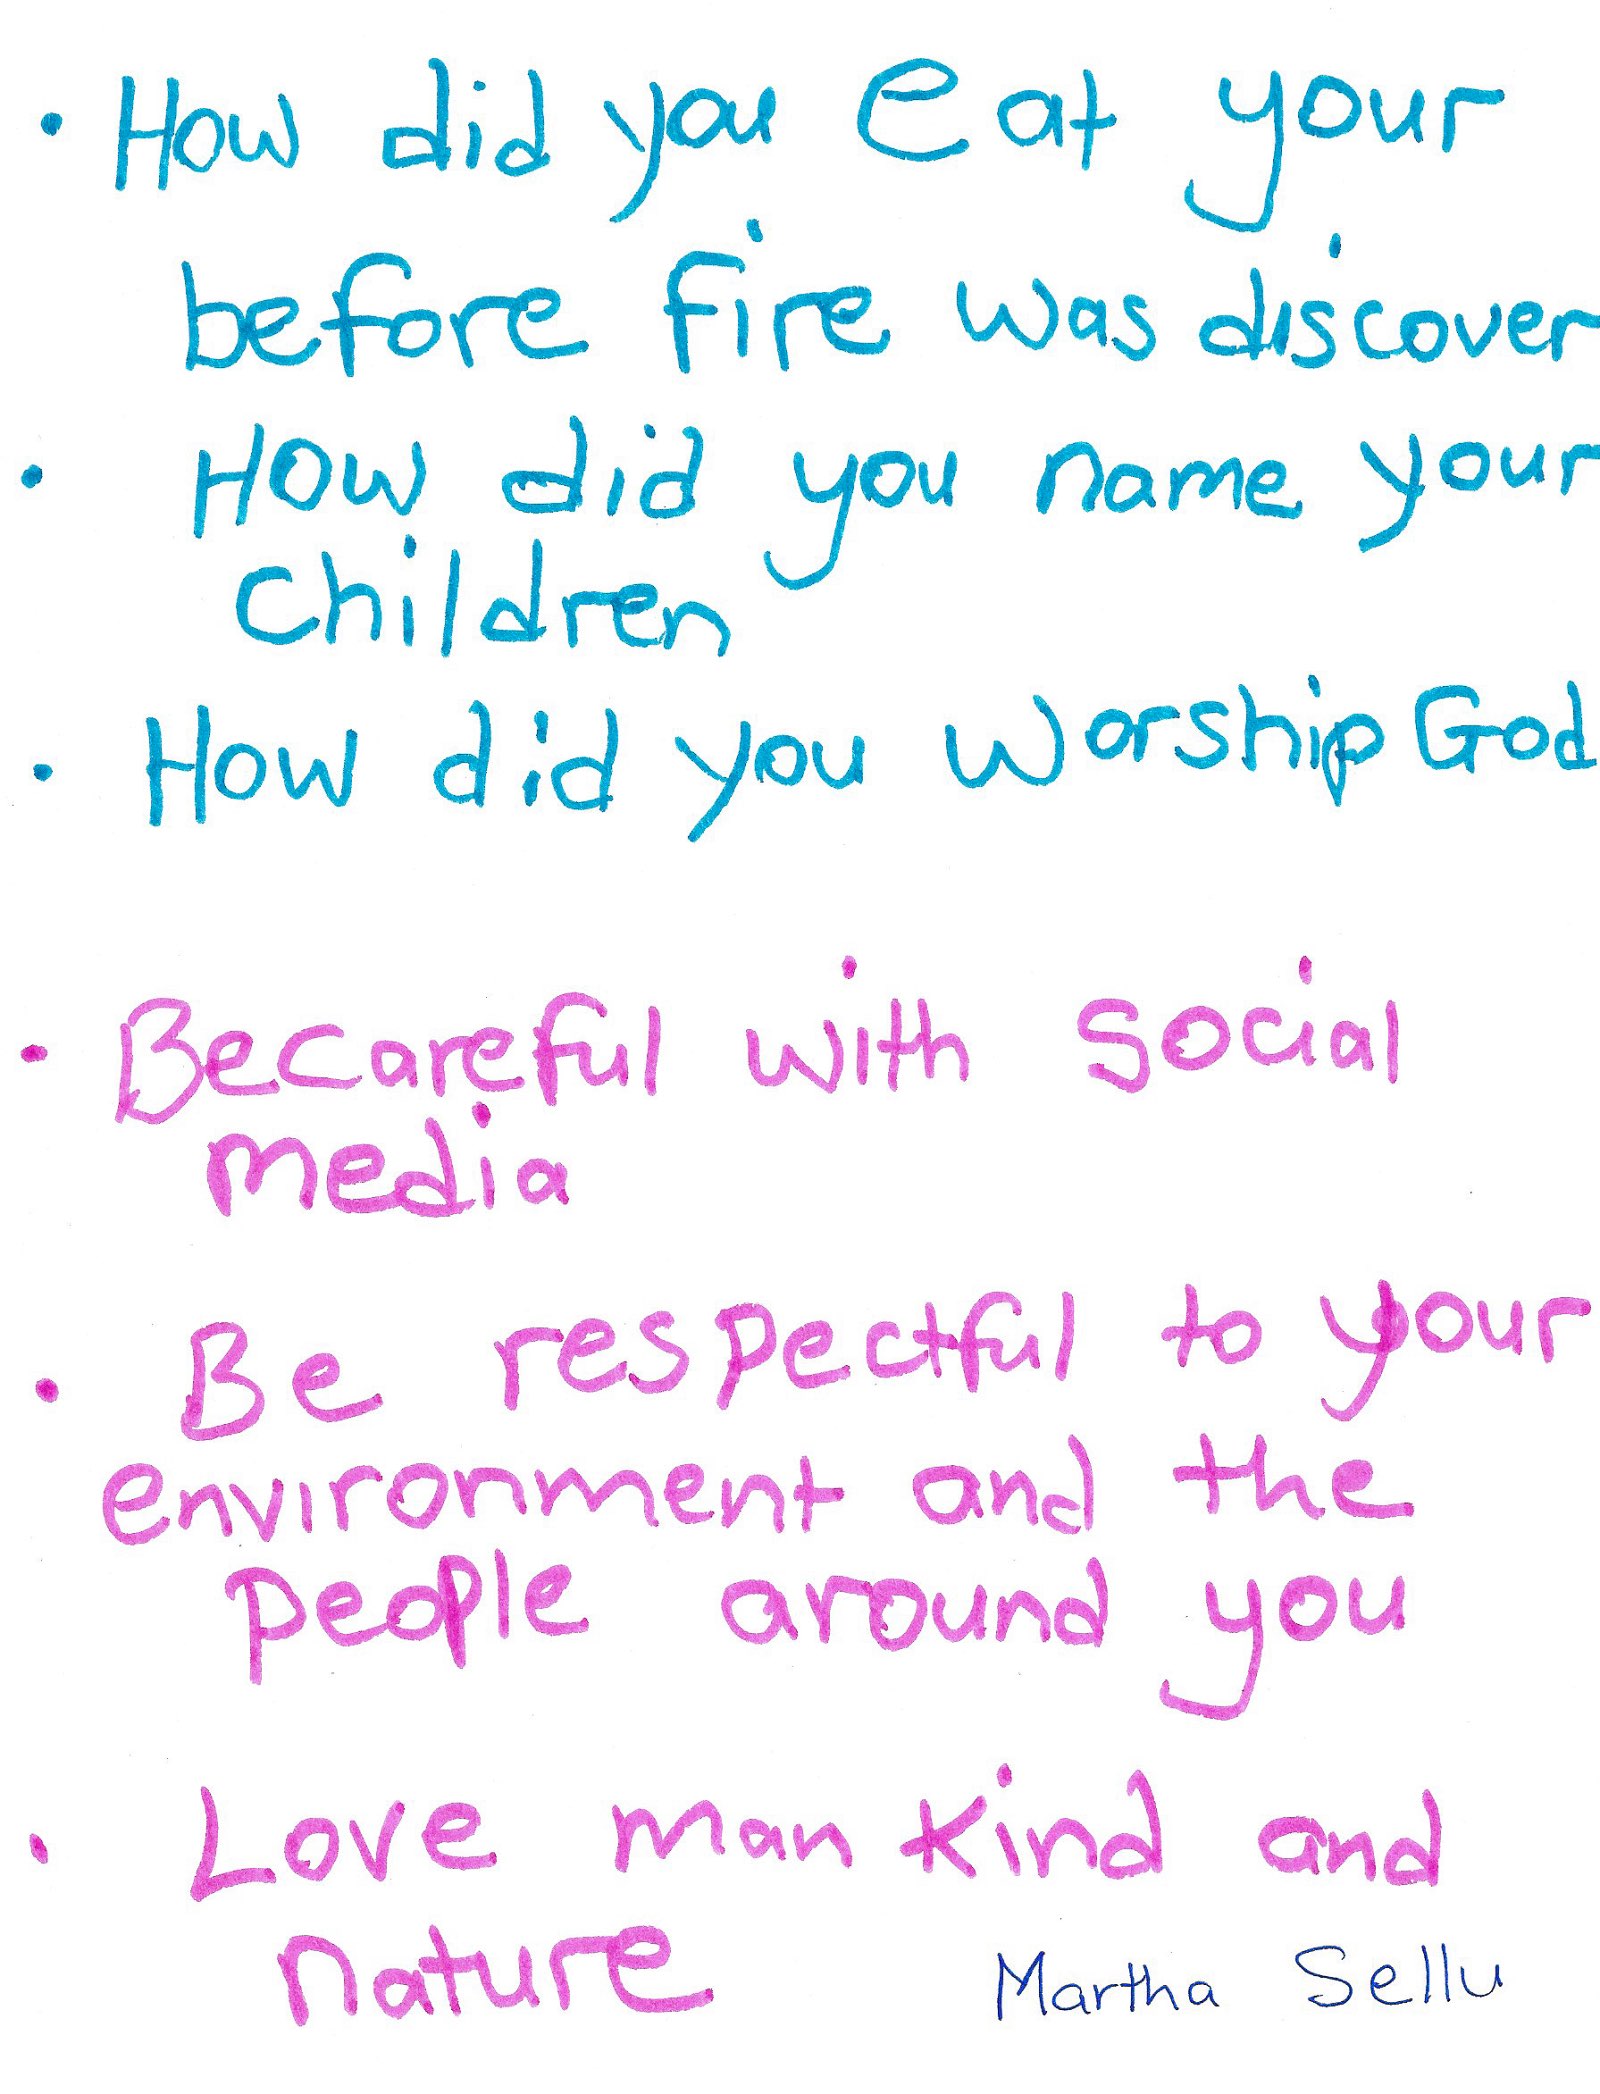 • How did you eat your
before fire was discover
• How did you name your
children
• How did you worship God
• Becareful with social
media
• Be respectful to your
environment and the
people around you
• Love man kind and
nature
Martha Sellu